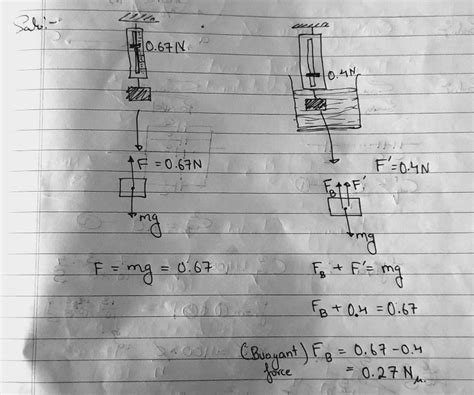 Sol:-
0.67N
0.4N
F = 0.67N
mg
F' = 0.4N
F_B F'
mg
F = mg = 0.67
F_B + F' = mg
F_B + 0.4 = 0.67
(Buoyant) F_B = 0.67 - 0.4
force = 0.27 N